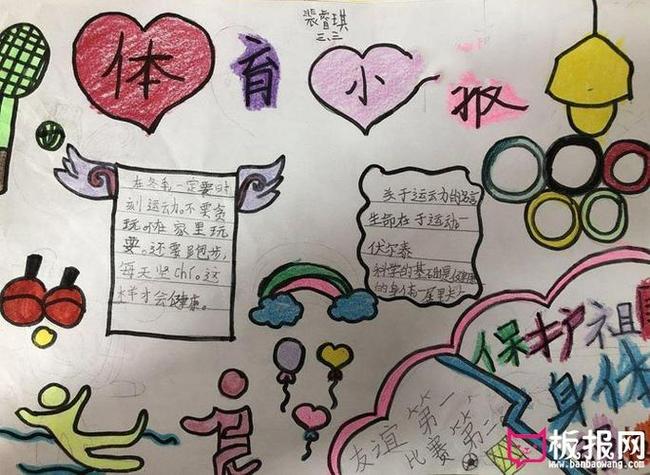 裴睿琪
三、三
体育小报
在冬季一定要时
刻运动。不要贪
玩吖在家里玩
耍。还要跑步,
每天坚chí。这
样才会健康。
关于运动力的名言
生命在于运动一
伏尔泰
科学的基础是健康
的身体一居里夫人
保护祖
身体
友谊第一
比赛第二
板报网
www.banbaowang.com